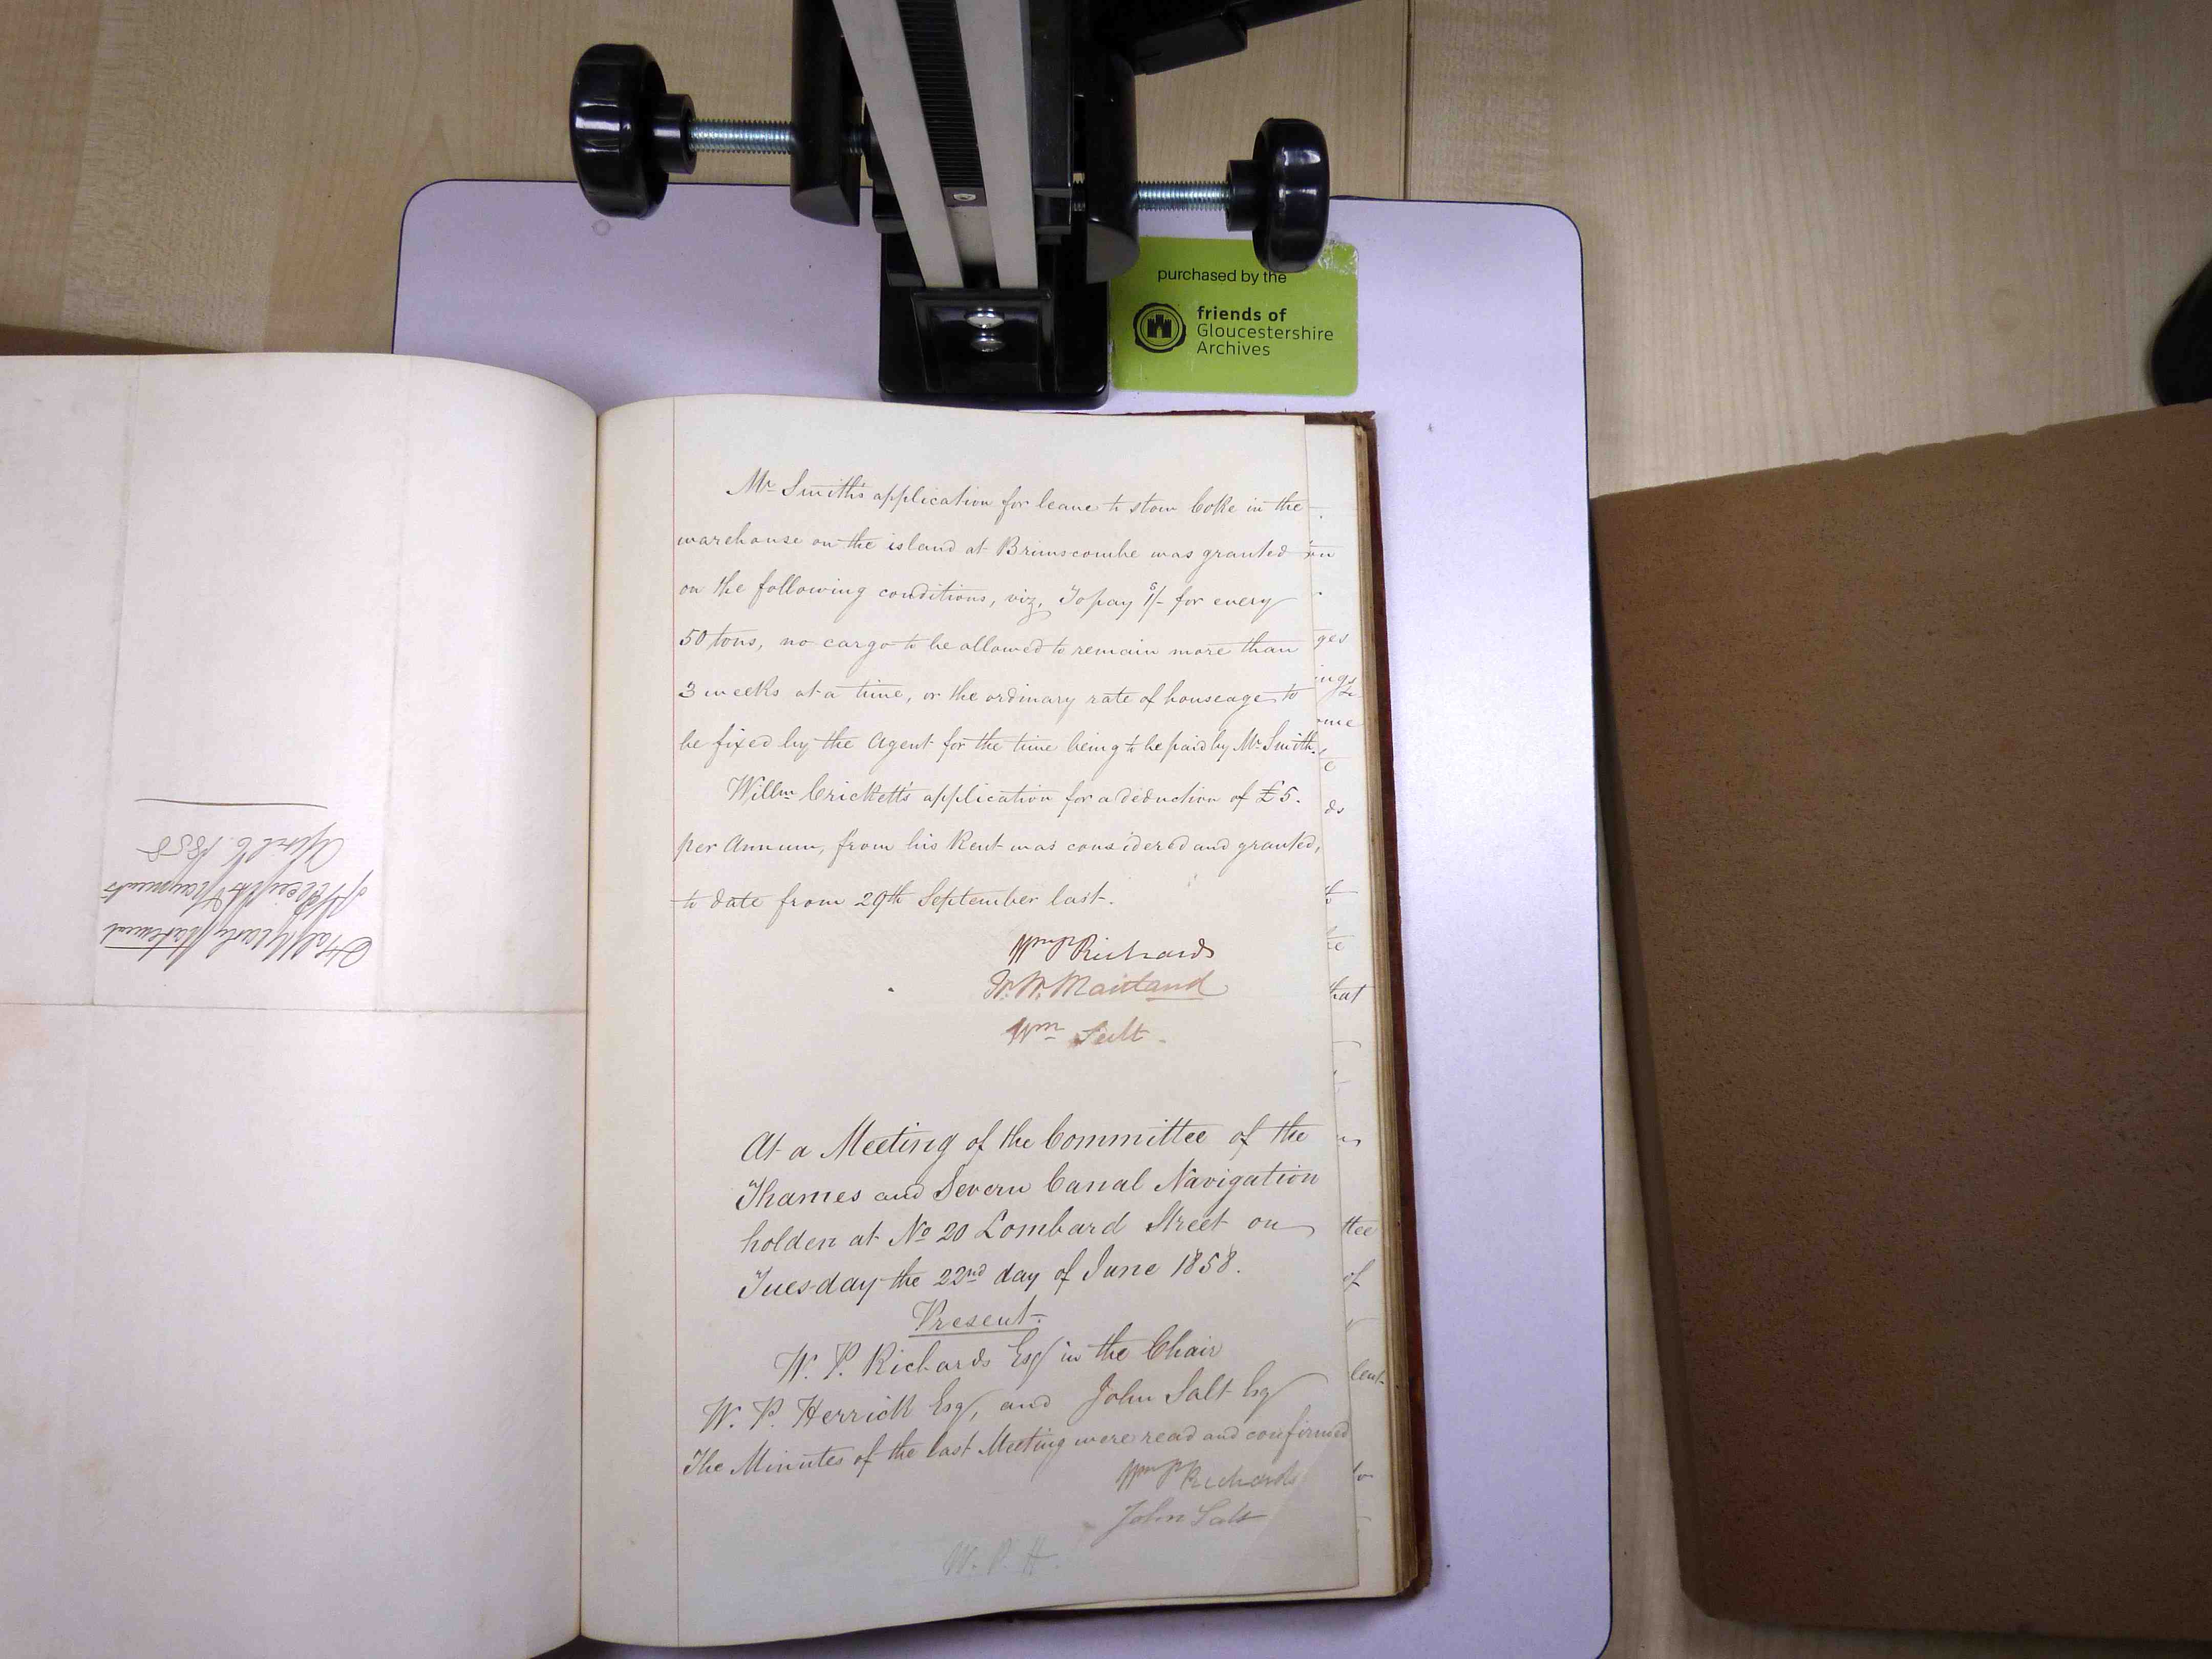 purchased by the
friends of
Gloucestershire
Archives
Half Yearly Statement
of Receipts & Payments
April 6. 1858
Mr Smith's application for leave to stow Coke in the
warehouse on the island at Brimscombe was granted
on the following conditions, viz, To pay /- for every
50 tons, no cargo to be allowed to remain more than
3 weeks at a time, or the ordinary rate of houseage to
be fixed by the Agent for the time being to be paid by Mr Smith.
Willm Crickett's application for a deduction of £5.
per Annum, from his Rent was considered and granted,
to date from 29th September last.
Wm P Richards
W. Maitland
Wm Salt
At a Meeting of the Committee of the
Thames and Severn Canal Navigation
holden at No 20 Lombard Street on
Tuesday the 22nd day of June 1858.
Present.
W. P. Richards Esq in the Chair
W. P. Herrick Esq, and John Salt Esq
The Minutes of the last Meeting were read and confirmed
Wm P Richards
John Salt
W. P. H.
ges
ings
ome
ds
to
that
ttee
of
lent
to